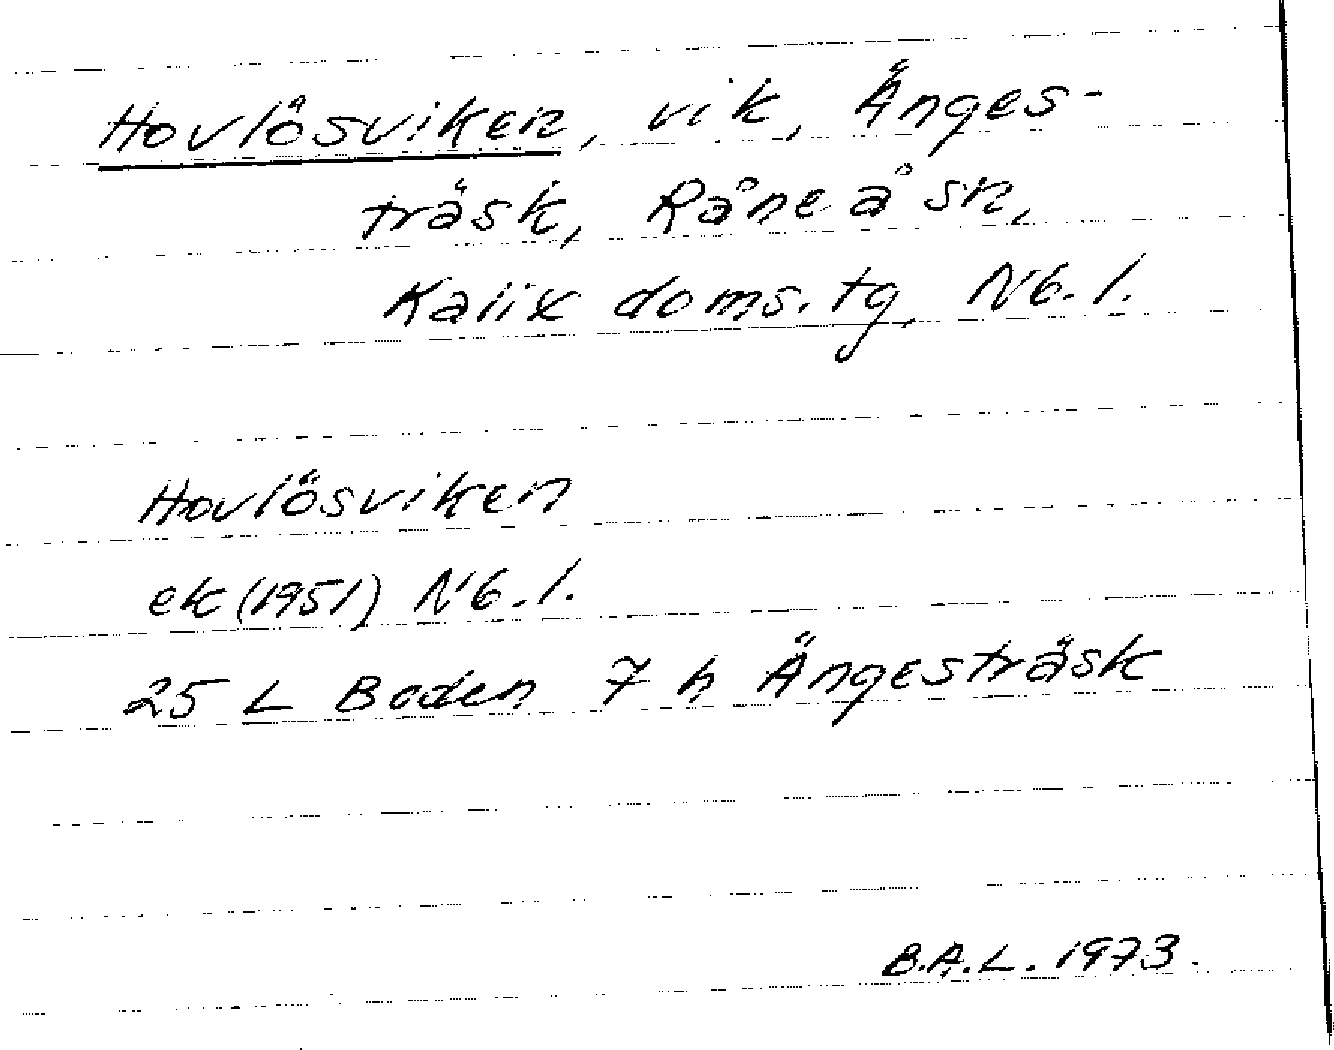 Hovlösviken, vik, Änges-
träsk, Råneå sn,
Kalix doms.tg, Nb.l.
Hovlösviken
ek (1951) Nb.l.
25 L Boden 7 h Ängesträsk
B.A.L. 1973.